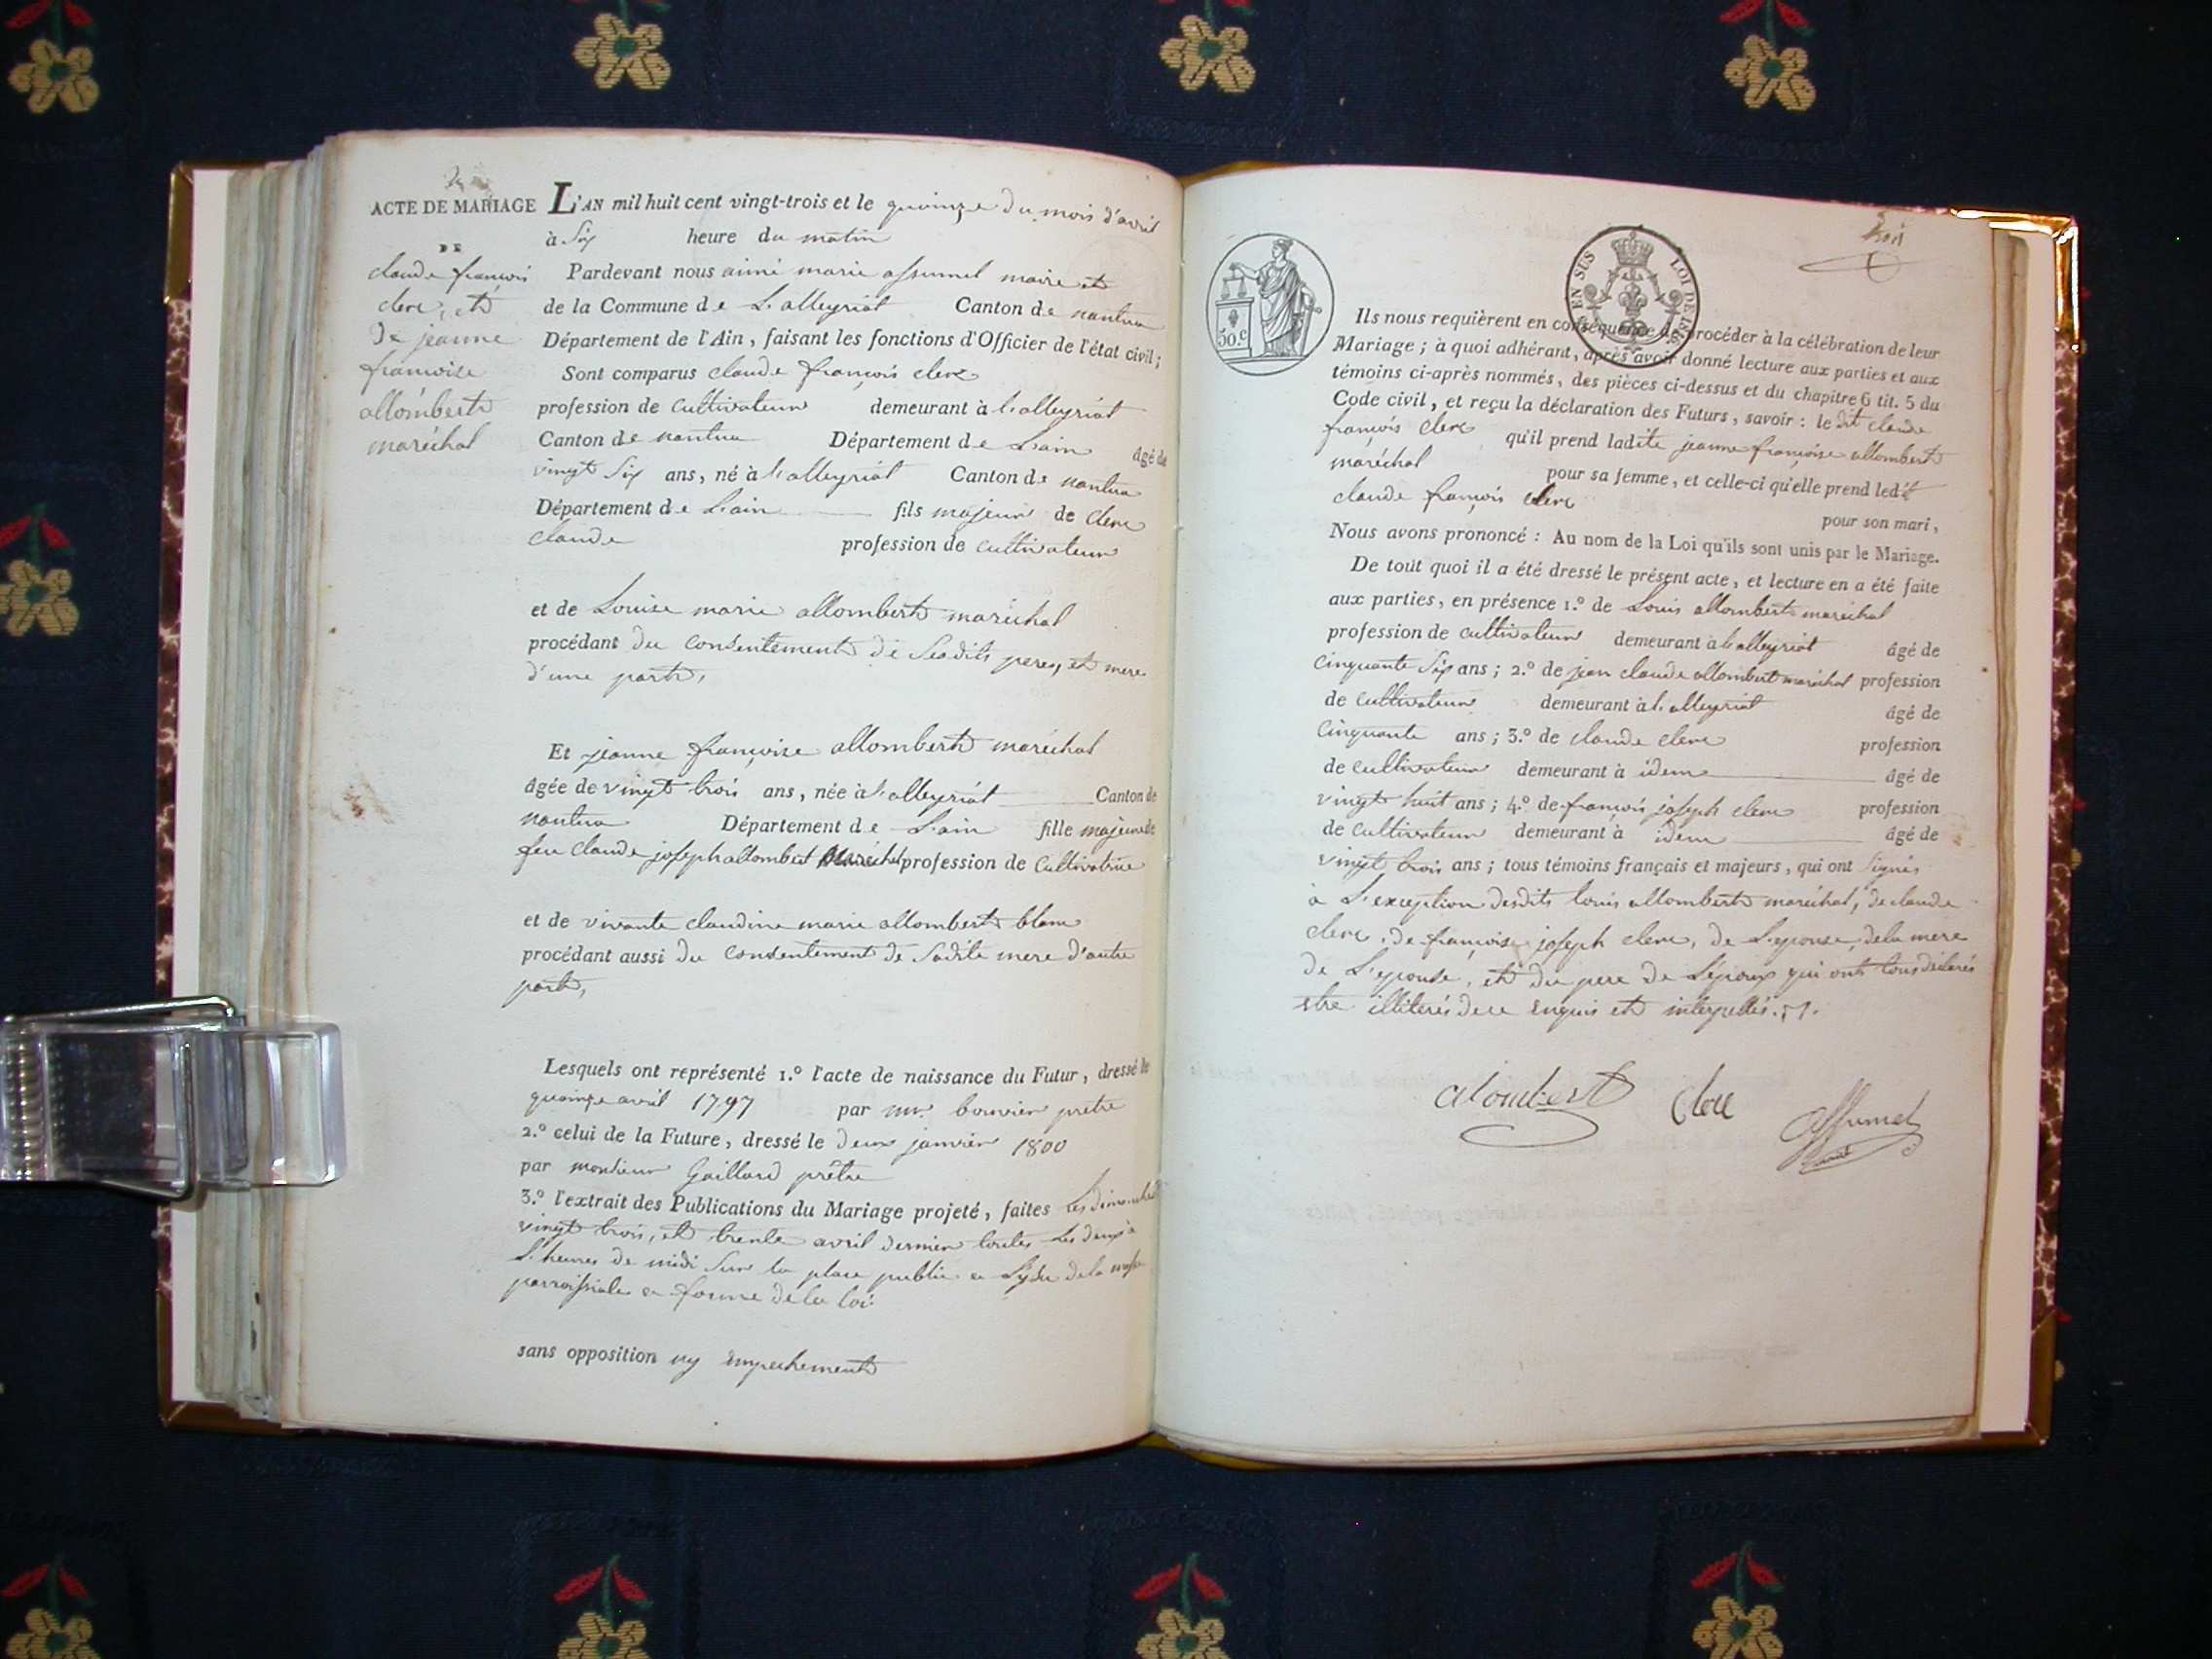 ACTE DE MARIAGE
DE
claude françois
clerc, et
De jeanne
françoise
allombert
maréchal
L'AN mil huit cent vingt-trois et le quinze du mois d'avril
à Six heure du matin
Pardevant nous aimé marie assumel maire et
de la Commune de L'alleyriat Canton de nantua
Département de l'Ain, faisant les fonctions d'Officier de l'état civil;
Sont comparus claude françois clerc
profession de Cultivateur demeurant à L'alleyriat
Canton de nantua Département de L'ain âgé de
vingt Six ans, né à L'alleyriat Canton de nantua
Département de L'ain fils majeur de Clerc
claude profession de cultivateur
et de Louise marie allombert maréchal
procédant du Consentement de Sesdits peres, et mere
d'une part,
Et jeanne françoise allombert maréchal
âgée de vingt trois ans, née à L'alleyriat Canton de
nantua Département de L'ain fille majeure de
feu claude joseph allombert Maréchal profession de Cultivatrice
et de vivante claudine marie allombert blanc
procédant aussi du Consentement de Sadite mere d'autre
part,
Lesquels ont représenté 1.º l'acte de naissance du Futur, dressé le
quinze avril 1797 par mr. bouvier prêtre
2.º celui de la Future, dressé le deux janvier 1800
par monsieur Gaillard prêtre
3.º l'extrait des Publications du Mariage projeté, faites Les dimanches
vingt trois, et trente avril dernier toutes Les deux à
L'heures de midi Sur la place public a L'issu de la messe
parroissiale en forme de la loi
sans opposition ny empechement
trois
50 c
EN SUS LOI DE
Ils nous requièrent en conséquence de procéder à la célébration de leur
Mariage; à quoi adhérant, après avoir donné lecture aux parties et aux
témoins ci-après nommés, des pièces ci-dessus et du chapitre 6 tit. 5 du
Code civil, et reçu la déclaration des Futurs, savoir: le dit claude
françois clerc qu'il prend ladite jeanne françoise allombert
maréchal pour sa femme, et celle-ci qu'elle prend ledit
claude françois clerc pour son mari,
Nous avons prononcé: Au nom de la Loi qu'ils sont unis par le Mariage.
De tout quoi il a été dressé le présent acte, et lecture en a été faite
aux parties, en présence 1.º de Louis allombert maréchal
profession de cultivateur demeurant à L'alleyriat âgé de
Cinquante Six ans; 2.º de jean claude allombert maréchal profession
de Cultivateur demeurant à L'alleyriat âgé de
Cinquante ans; 3.º de claude clerc profession
de cultivateur demeurant à idem âgé de
vingt huit ans; 4.º de françois joseph clerc profession
de cultivateur demeurant à idem âgé de
vingt trois ans; tous témoins français et majeurs, qui ont Signés
à L'exception desdits louis allombert maréchal, de claude
clerc, de françois joseph clerc, de L'epouse, de la mere
de L'epouse, et du pere de L'époux qui ont tous déclarés
etre illiterés de ce enquis et interpellés.
alombert Clerc Assumel
maire